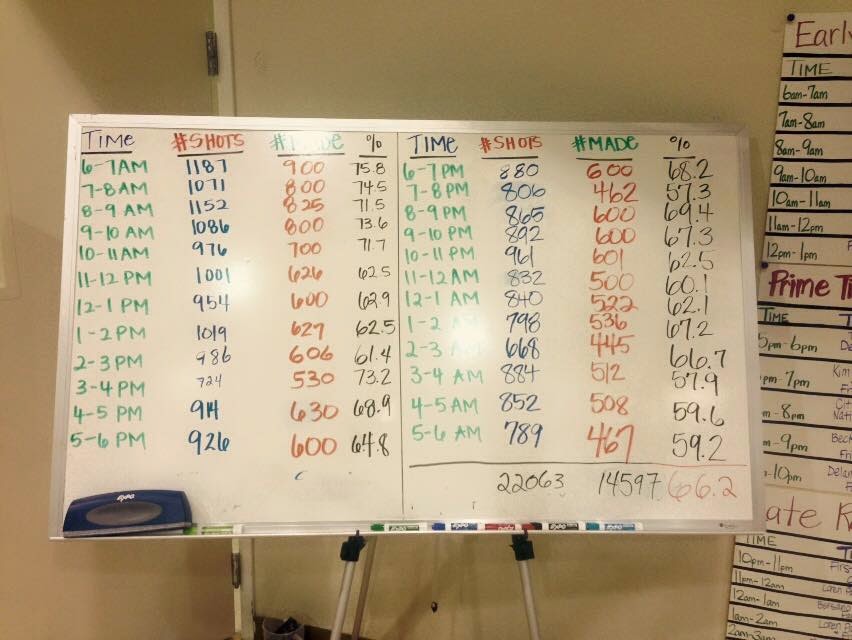 TIME #SHOTS #MADE %
6-7AM 1187 900 75.8
7-8AM 1071 800 74.5
8-9 AM 1152 825 71.5
9-10 AM 1086 800 73.6
10-11AM 976 700 71.7
11-12 PM 1001 626 62.5
12-1 PM 954 600 62.9
1-2 PM 1019 627 62.5
2-3 PM 986 606 61.4
3-4 PM 724 530 73.2
4-5 PM 914 630 68.9
5-6 PM 926 600 64.8
TIME #SHOTS #MADE %
6-7 PM 880 600 68.2
7-8 PM 806 462 57.3
8-9 PM 865 600 69.4
9-10 PM 892 600 67.3
10-11 PM 961 601 62.5
11-12 AM 832 500 60.1
12-1 AM 840 522 62.1
1-2 798 536 67.2
2-3 668 445 66.7
3-4 AM 884 512 57.9
4-5 AM 852 508 59.6
5-6 AM 789 467 59.2
22063 14597 66.2
EXPO
Early
TIME
6am-7am
7am-8am
8am-9am
9am-10am
10am-11am
11am-12pm
12pm-1pm
Prime
TIME
5pm-6pm
pm-7pm Kim
m-8pm
m-9pm
-10pm
ate
TIME
10pm-11pm
11pm-12am
12am-1am
1am-2am
2am-3am